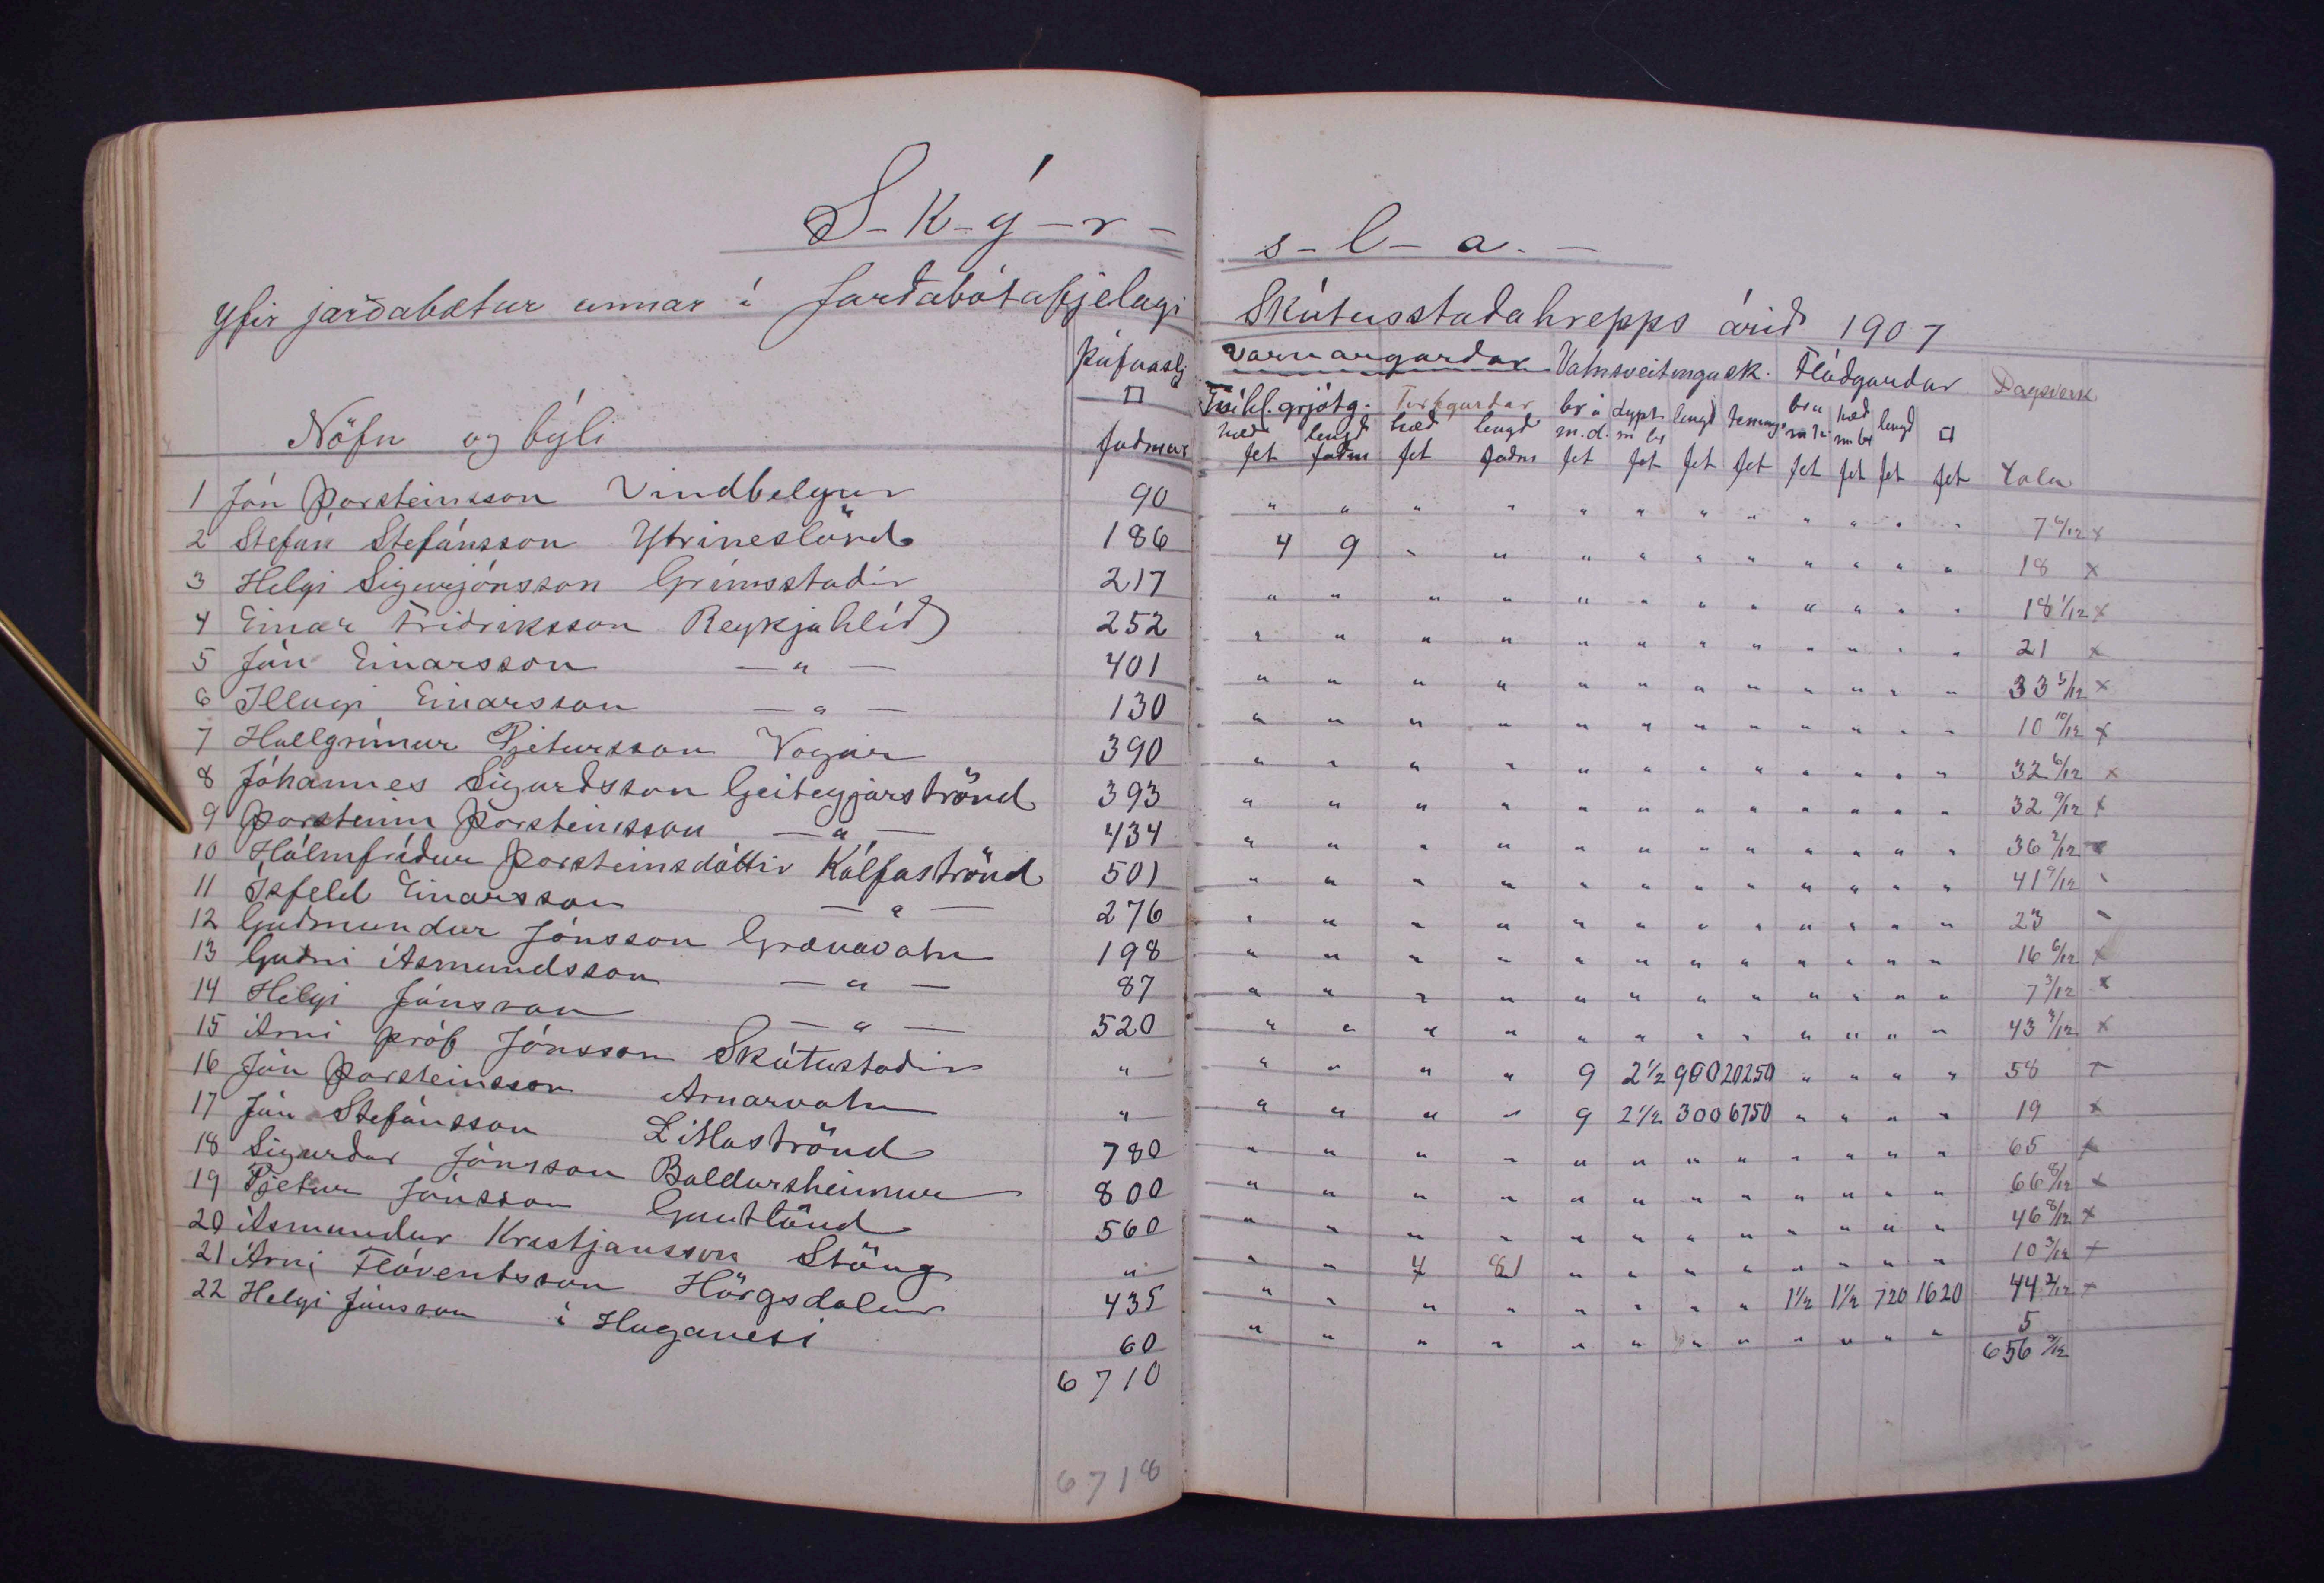 S-k-ý-r-s-l-a.-
Yfir jarðabætur unnar í Jarðabótafjelagi Skútusstaðahrepps árið 1907
Þúfnaslj □ faðmar
Varnargarðar Vatnsveitingask. Flóðgarðar Dagsverk
Tvíhl. grjótg. Torfgarðar br á dýpt lengd tening br á hæð lengd □
hæð lengd hæð lengd m.d. m br
Nöfn og býli
fet faðm fet faðm fet fet fet fet fet fet fet fet Tala
1 Jón Þorsteinsson Vindbelgur 90 " " " " " " " " " " " " 7 6/12 x
2 Stefán Stefánsson Ytrineslönd 186 4 9 " " " " " " " " " " 18 x
3 Helgi Sigurjónsson Grímsstaðir 217 " " " " " " " " " " " " 18 1/12 x
4 Einar Friðriksson Reykjahlíð 252 " " " " " " " " " " " " 21 x
5 Jón Einarsson — " — 401 " " " " " " " " " " " " 33 5/12 x
6 Illugi Einarsson — " — 130 " " " " " " " " " " " " 10 10/12 x
7 Hallgrímur Pjetursson Vogar 390 " " " " " " " " " " " " 32 6/12 x
8 Jóhannes Sigurðsson Geiteyjarströnd 393 " " " " " " " " " " " " 32 9/12 x
9 Þorsteinn Þorsteinsson — " — 434 " " " " " " " " " " " " 36 2/12 x
10 Hólmfríður Þorsteinsdóttir Kálfaströnd 501 " " " " " " " " " " " " 41 9/12
11 Ísfeld Einarsson — " — 276 " " " " " " " " " " " " 23
12 Guðmundur Jónsson Grænavatn 198 " " " " " " " " " " " " 16 6/12 x
13 Guðni Ásmundsson — " — 87 " " " " " " " " " " " " 7 3/12 x
14 Helgi Jónsson — " — 520 " " " " " " " " " " " " 43 4/12 x
15 Árni próf Jónsson Skútustaðir " " " " " 9 2 1/2 900 20250 " " " " 58
16 Jón Þorsteinsson Arnarvatn " " " " " 9 2 1/2 300 6750 " " " " 19 x
17 Jón Stefánsson Litlaströnd 780 " " " " " " " " " " " " 65 x
18 Sigurður Jónsson Baldursheimur 800 " " " " " " " " " " " " 66 8/12 x
19 Pjetur Jónsson Gautlönd 560 " " " " " " " " " " " " 46 8/12 x
20 Ásmundur Kristjansson Stöng " " " 4 81 " " " " " " " " 10 3/12 x
21 Árni Flóventsson Hörgsdalur 435 " " " " " " " " 1 1/2 1 1/2 720 1620 44 2/12 x
22 Helgi Jónsson í Haganesi 60 " " " " " " " " " " " " 5
6710 656 9/12
6718